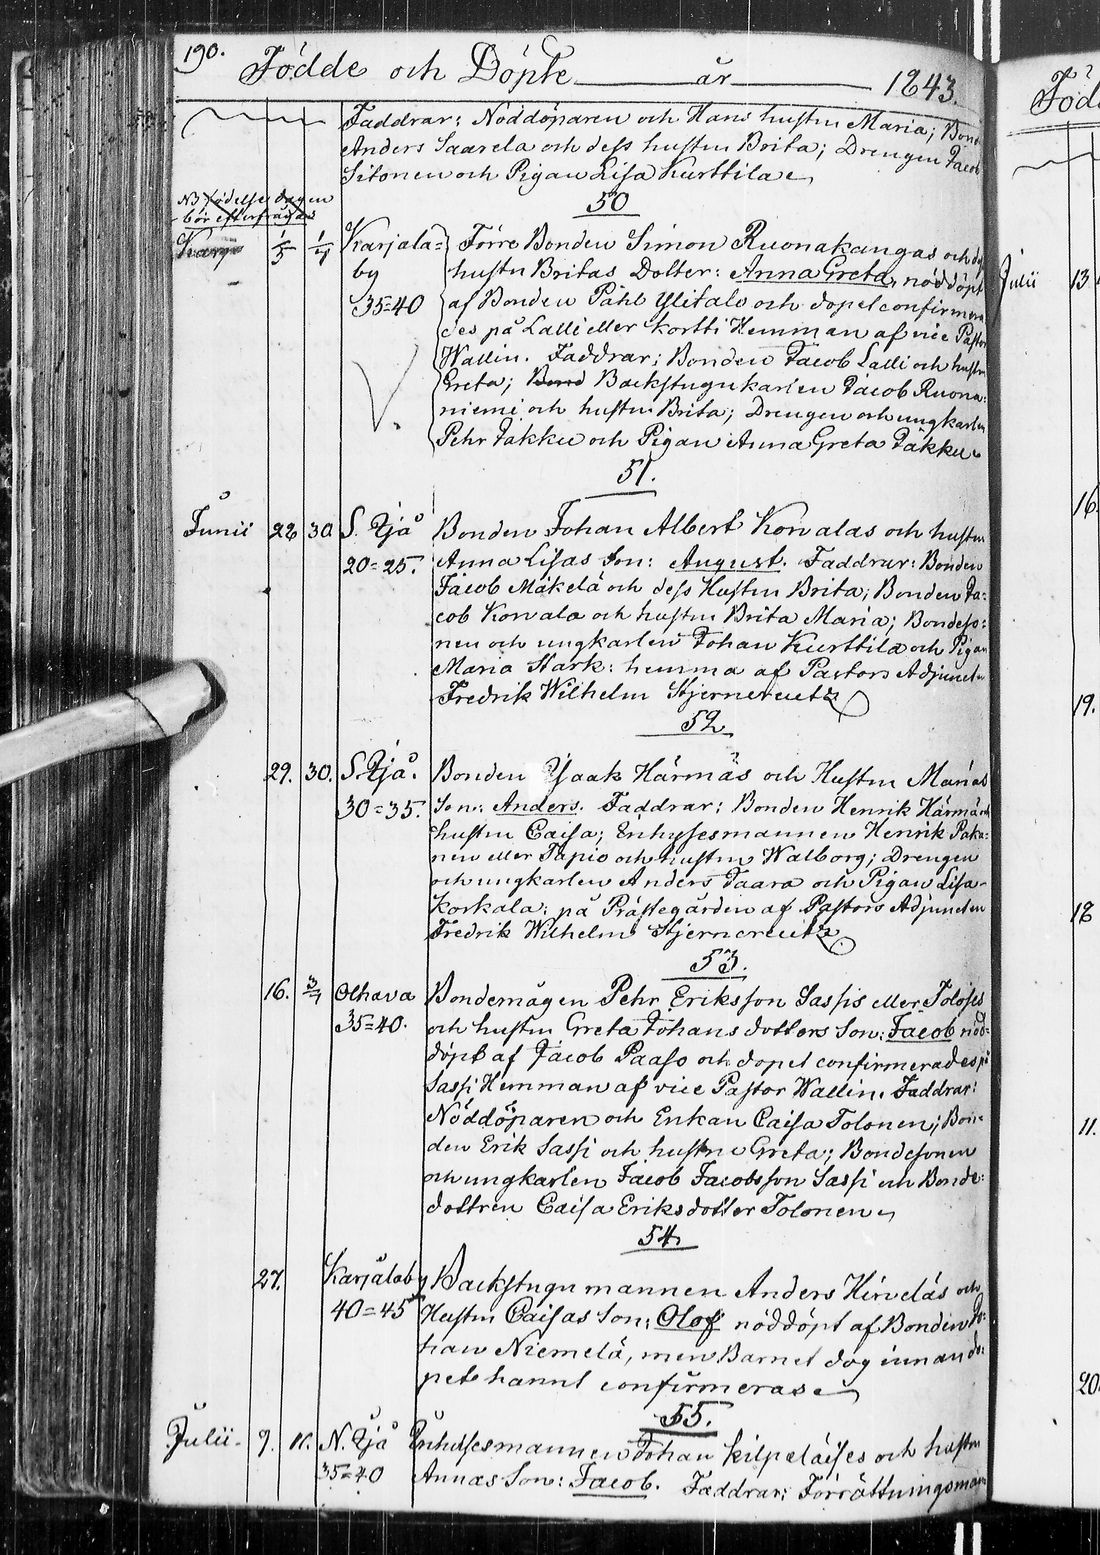 190. Födde och Döpte år 1843.
Faddrar: Nöddöparen och Hans hustru Maria; Bond
Anders Saarela och dess hustru Brita; Drengen Jacob
Sitonen och Pigan Lisa Kurttila
N3 födelse dagen
bör efterfrågas
50
1/5 1/7 Karjala=
by
35=40
Förre Bonden Simon Ruonakangas och d
hustru Britas Dotter: Anna Greta, nöddöpt
af Bonden Påhl Ylitalo och dopet confirmera
des på Lalli eller Kortti Hemman af vice Pastor
Wallin. Faddrar; Bonden Jacob Lalli och hustru
Greta; Bond Backstugukarlen Jacob Ruona=
niemi och hustru Brita; Drengen och ungkarlen
Pehr Jäkku och Pigan Anna Greta Jäkku
51.
Junii 22 30 S. Ijå
20=25.
Bonden Johan Albert Korvalas och hustru
Anna Lisas Son: August. Faddrar: Bonden
Jacob Mäkelä och dess Hustru Brita; Bonden Ja=
cob Korvala och hustru Brita Maria; Bondeso=
nen och ungkarlen Johan Kurttila och Pigan
Maria Stark: hemma af Pastors Adjuncten
Fredrik Wilhelm Stjerncreutz
52
29. 30. S. Ijå.
30=35.
Bonden Isaak Härmäs och Hustru Marias
Son: Anders. Faddrar; Bonden Henrik Härmä och
hustru Caisa; Inhysesmannen Henrik Paka=
nen eller Tapio och hustru Walborg; Drengen
och ungkarlen Anders Jaara och Pigan Lisa
Korkala: på Prästegården af Pastors Adjuncten
Fredrik Wilhelm Stjerncreutz
53.
16. 3/7 Olhava
35=40.
Bondemågen Pehr Eriksson Sassis eller Tolosis
och hustru Greta Johans dotters Son: Jacob nöd=
döpt af Jacob Paaso och dopet confirmerades på
Sassi Hemman af vice Pastor Wallin. Faddrar:
Nöddöparen och Enkan Caisa Tolonen; Bon=
den Erik Sassi och hustru Greta; Bondesonen
och ungkarlen Jacob Jacobsson Sassi och Bonde=
dottren Caisa Eriksdotter Tolonen
54.
27. Karjalaby
40=45
Backstugu mannen Anders Hirveläs och
Hustru Caisas Son: Olof nöddöpt af Bonden Jo=
han Niemelä, men Barnet dog innan do=
pet hannt confirmeras
55.
Julii. 9. 11. N. Ijå
35=40
Inhysesmannen Johan Kilpeläises och hustru
Annas Son: Jacob. Faddrar: Förrättningsman
Föd
Julii 13
16.
19.
18
11.
20.